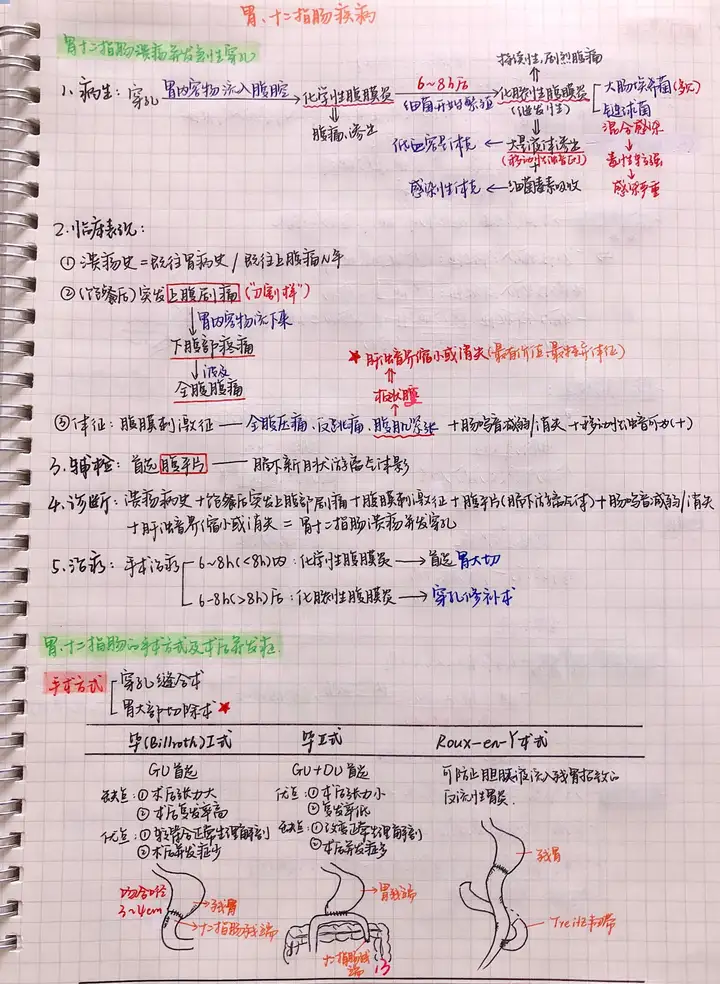 胃、十二指肠疾病
胃十二指肠溃疡并发急性穿孔
持续性,剧烈腹痛
1. 病生: 穿孔 胃内容物流入腹腔 → 化学性腹膜炎 6~8h后 细菌开始繁殖 → 化脓性腹膜炎 (继发性) 大肠埃希菌(多见)
链球菌
腹痛、渗出
低血容量休克 ← 大量液体渗出 (移动性浊音(+))
混合感染
毒性较强
感染严重
感染性休克 ← 细菌毒素吸收
2. 临床表现:
① 溃疡史 = 既往胃病史 / 既往上腹痛N年
② (饱餐后) 突发上腹剧痛 ("刀割样")
胃内容物流下来
下腹部疼痛
波及
全腹腹痛
★ 肝浊音界缩小或消失 (最有价值、最特异体征)
板状腹
③ 体征: 腹膜刺激征 —— 全腹压痛、反跳痛、腹肌紧张 + 肠鸣音减弱/消失 + 移动性浊音可为(+)
3. 辅检: 首选腹平片 —— 膈下新月状游离气体影
4. 诊断: 溃疡病史 + 饱餐后突发上腹部剧痛 + 腹膜刺激征 + 腹平片(膈下游离气体) + 肠鸣音减弱/消失
+ 肝浊音界缩小或消失 = 胃十二指肠溃疡并发穿孔
5. 治疗: 手术治疗 6~8h(<8h)内: 化学性腹膜炎 → 首选胃大切
6-8h(>8h)后: 化脓性腹膜炎 → 穿孔修补术
胃、十二指肠的手术方式及术后并发症.
手术方式 穿孔缝合术
胃大部切除术 ★
毕(Billroth)I式 毕II式 Roux-en-Y术式
GU首选
缺点: ① 术后张力大
② 术后复发率高
优点: ① 较符合正常生理解剖
② 术后并发症少
GU+DU首选
优点: ① 术后张力小
② 复发率低
缺点: ① 改变正常生理解剖
② 术后并发症多
可防止胆胰液流入残胃招致的
反流性胃炎.
吻合口径
3~4cm
残胃
十二指肠残端
胃残端
十二指肠残端
残胃
Treitz韧带